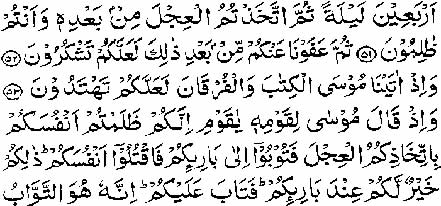 اَرْبَعِيْنَ لَيْلَةً ثُمَّ اتَّخَذْتُمُ الْعِجْلَ مِنْۢ بَعْدِهٖ وَاَنْتُمْ
ظٰلِمُوْنَ ﴿۵۱﴾ ثُمَّ عَفَوْنَا عَنْكُمْ مِّنْۢ بَعْدِ ذٰلِكَ لَعَلَّكُمْ تَشْكُرُوْنَ ﴿۵۲﴾
وَاِذْ اٰتَيْنَا مُوْسَى الْكِتٰبَ وَالْفُرْقَانَ لَعَلَّكُمْ تَهْتَدُوْنَ ﴿۵۳﴾
وَاِذْ قَالَ مُوْسٰى لِقَوْمِهٖ يٰقَوْمِ اِنَّكُمْ ظَلَمْتُمْ اَنْفُسَكُمْ
بِاتِّخَاذِكُمُ الْعِجْلَ فَتُوْبُوْٓا اِلٰى بَارِئِكُمْ فَاقْتُلُوْٓا اَنْفُسَكُمْ ؕ ذٰلِكُمْ
خَيْرٌ لَّكُمْ عِنْدَ بَارِئِكُمْ ؕ فَتَابَ عَلَيْكُمْ ؕ اِنَّهٗ هُوَ التَّوَّابُ